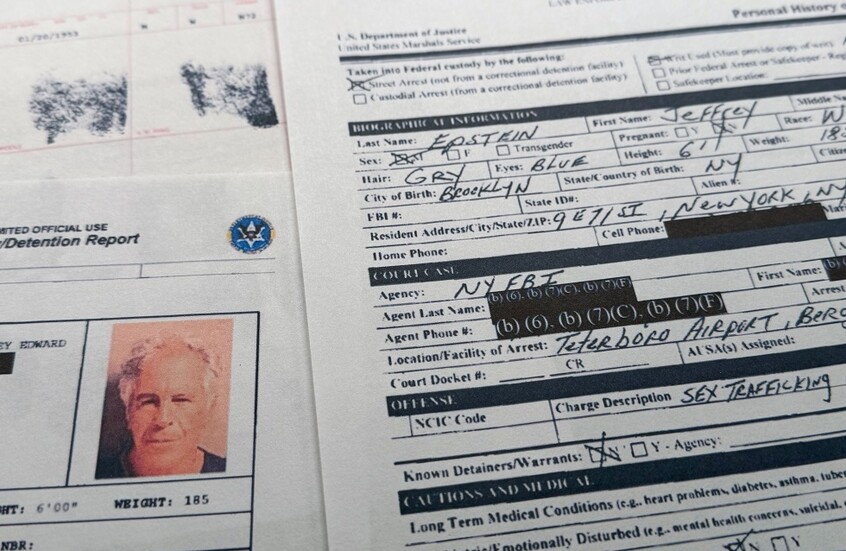 01/20/1953
W
W
W72
MITED OFFICIAL USE
/Detention Report
EY EDWARD
HT: 6'00" WEIGHT: 185
NBR:
Personal History o
U.S. Department of Justice
United States Marshals Service
Taken into Federal custody by the following:
Street Arrest (not from a correctional detention facility)
Custodial Arrest (from a correctional detention facility)
Writ Used (Must provide copy of writ)
Prior Federal Arrest or Safekeeper - Reg
Safekeeper Location:
BIOGRAPHICAL INFORMATION
Last Name: EPSTEIN First Name: Jeffrey Middle Na
Sex: M F Transgender Pregnant: Y N Race: W
Hair: GRY Eyes: BLUE Height: 6'1" Weight: 18
City of Birth: Brooklyn State/Country of Birth: NY Citize
FBI #: State ID#: Alien #:
Resident Address/City/State/ZIP: 9 E 71 ST, New York, NY
Home Phone: Cell Phone: Mar
COURT CASE
Agency: NY FBI
Agent Last Name: (b) (6), (b) (7)(C), (b) (7)(F) First Name: (b)
Agent Phone #: (b) (6), (b) (7)(C), (b) (7)(F) Arrest
Location/Facility of Arrest: Teterboro Airport, Berg
Court Docket #: CR AUSA(s) Assigned:
OFFENSE
NCIC Code Charge Description SEX TRAFFICKING
Known Detainers/Warrants: N Y - Agency:
CAUTIONS AND MEDICAL
Long Term Medical Conditions (e.g., heart problems, diabetes, asthma, tuber
/Emotionally Disturbed (e.g., mental health concerns, suicidal,
N Y